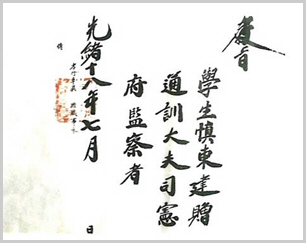 教旨
學生慎東建贈
通訓大夫司憲
府監察者
光緒十八年七月 日